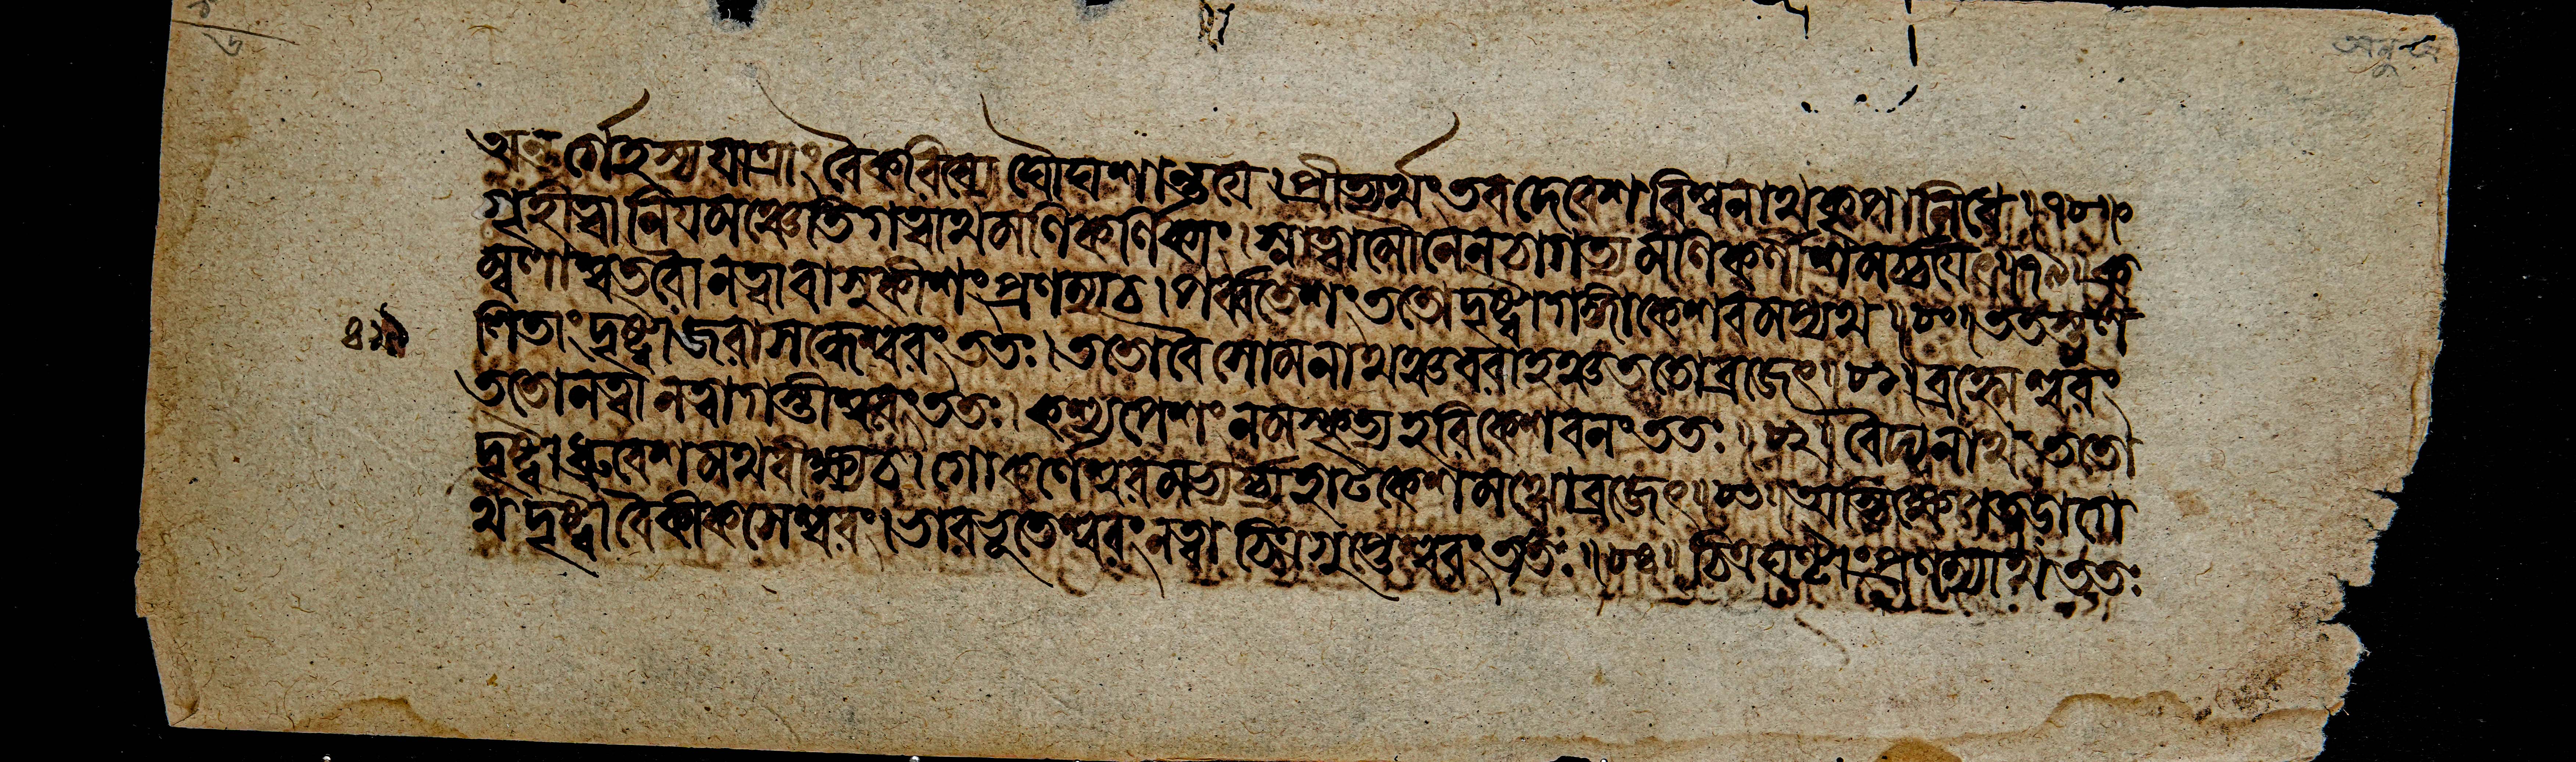 অন্তর্গেহস্য যাত্রাং বৈ করিষ্যে ঘৌঘশান্তয়ে । প্রীত্যর্থং তব দেবেশ বিশ্বনাথ কৃপানিধে ॥ ৭৮ ॥
গৃহীত্বা নিয়মঞ্চেতি গত্বাথ মণিকর্ণিকাং । স্নাত্বা মৌনেন চাগত্য মণিকর্ণীশমর্চ্চয়েৎ ॥ ৭৯ ॥ কম্
ম্বলাশ্বতরৌ নত্বা বাসুকীশং প্রণম্য চ । পর্ব্বতেশং ততো দৃষ্ট্বা গঙ্গাকেশবমপ্যথ ॥ ৮০ ॥ ততস্তু ল
লিতাং দৃষ্ট্বা জরাসন্ধেশ্বরং ততঃ । ততো বৈ সোমনাথঞ্চ বরাহঞ্চ ততো ব্রজেৎ ॥ ৮১ ॥ ব্রহ্মেশ্বরং
ততো নত্বা নত্বাগস্তীশ্বরং ততঃ । কশ্যপেশং নমস্কৃত্য হরিকেশবনং ততঃ ॥ ৮২ ॥ বৈদ্যনাথং ততো
দৃষ্ট্বা ধ্রুবেশমথ বীক্ষ্য চ । গোকর্ণেশ্বরমভ্যর্চ্চ্য হাটকেশমথো ব্রজেৎ ॥ ৮৩ ॥ অস্থিক্ষেপতড়াগে
থ দৃষ্ট্বা বৈ কীকসেশ্বরং । ভারভূতেশ্বরং নত্বা চিত্রগুপ্তেশ্বরং ততঃ ॥ ৮৪ ॥ চিত্রঘণ্টাং প্রণম্যাথ ততঃ